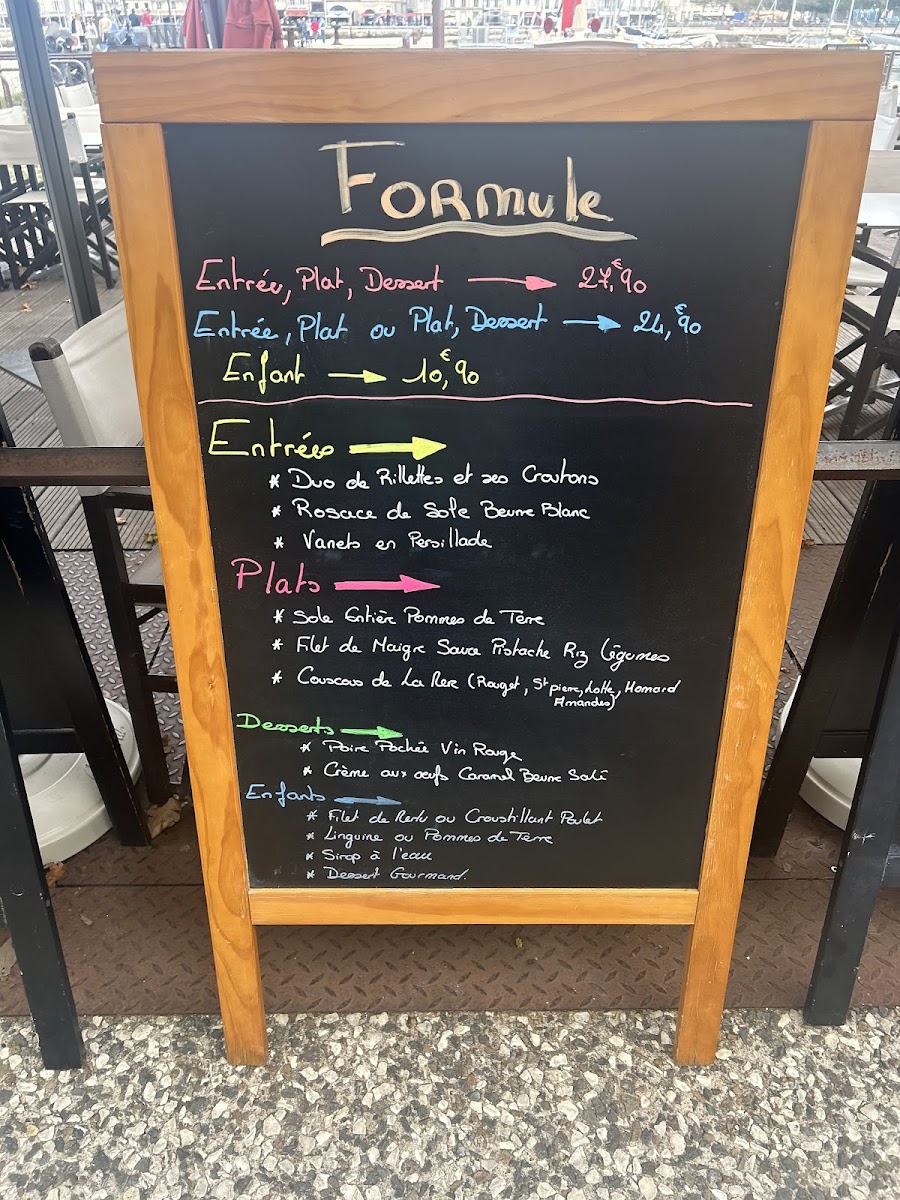 Formule
Entrée, Plat, Dessert → 27,€90
Entrée, Plat ou Plat, Dessert → 24,€90
Enfant → 10,€90
Entrées →
* Duo de Rillettes et ses Croutons
* Rosace de Sole Beurre Blanc
* Vanets en Persillade
Plats →
* Sole Entière Pommes de Terre
* Filet de Maigre Sauce Pistache Riz légumes
* Couscous de La Mer (Rouget, St pierre, Lotte, Homard
Amandes)
Desserts →
* Poire Pochée Vin Rouge
* Crème aux œufs Caramel Beurre Salé
Enfants →
* Filet de Merlu ou Croustillant Poulet
* Linguine ou Pommes de Terre
* Sirop à l'eau
* Dessert Gourmand.